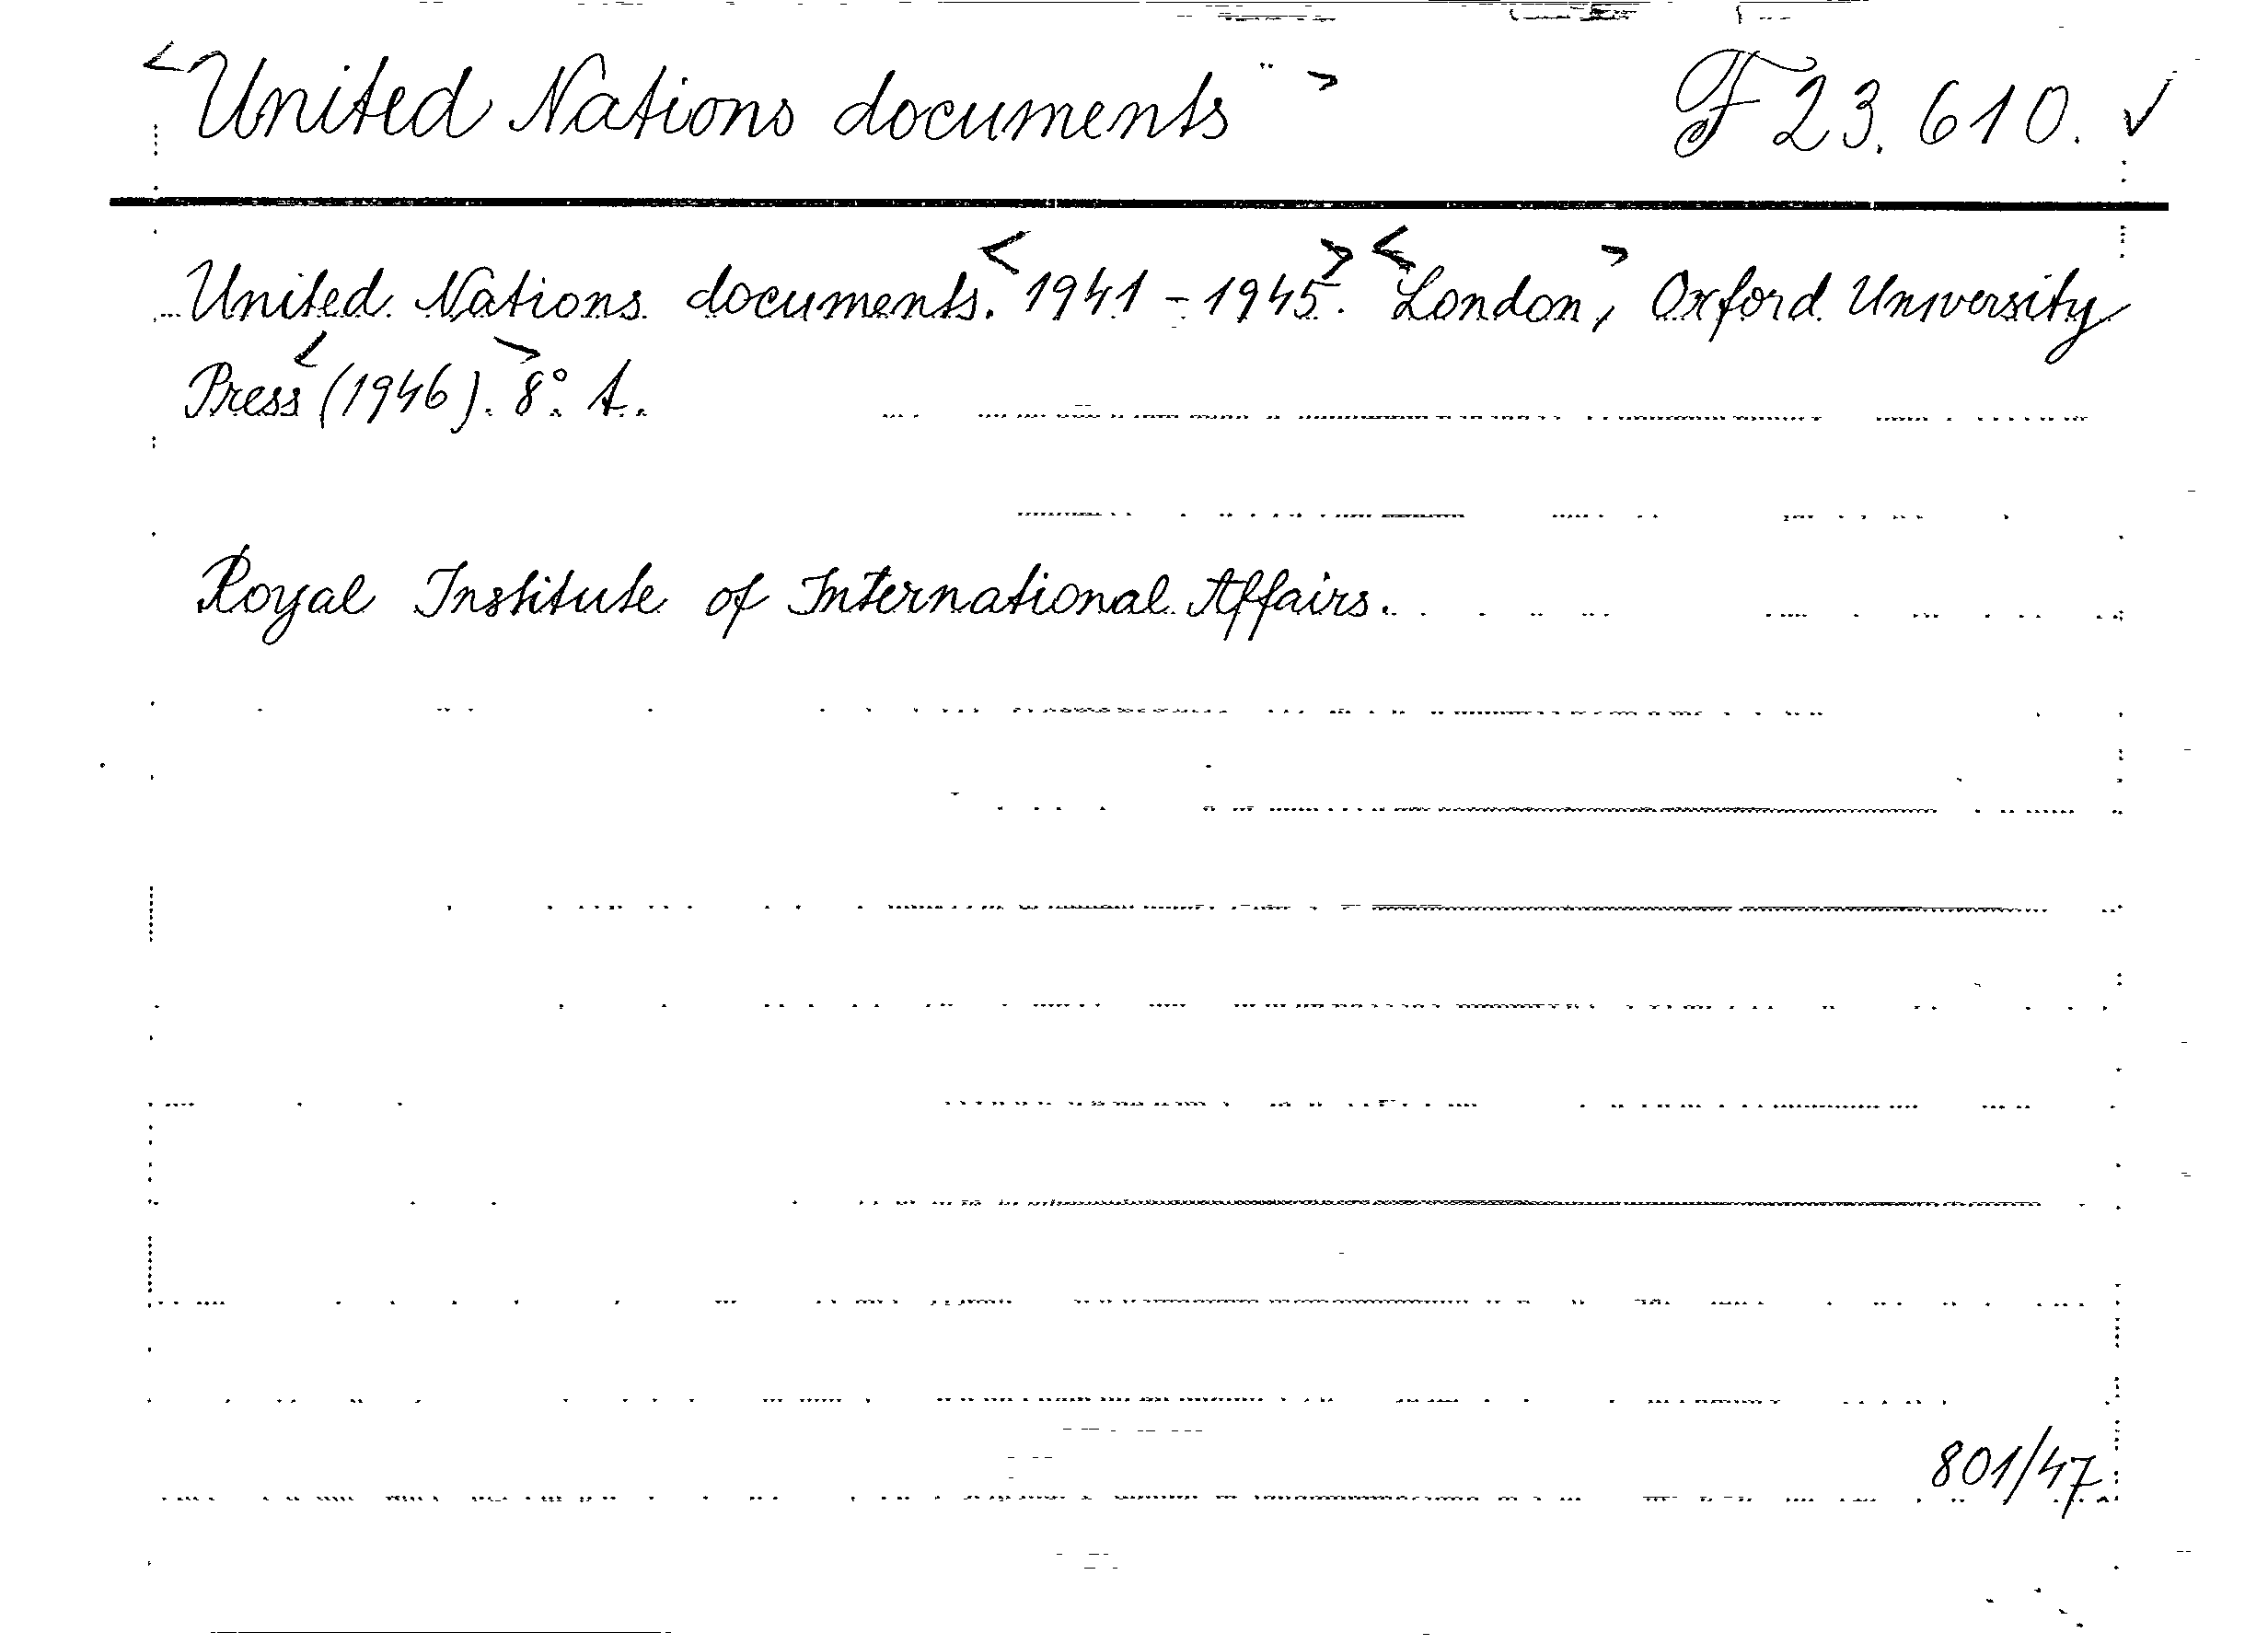 <United Nations documents> F 23.610. ✓
United Nations documents. <1941 - 1945>. <London>, Oxford University
Press <(1946)>. 8° A.
Royal Institute of International Affairs.
801/47